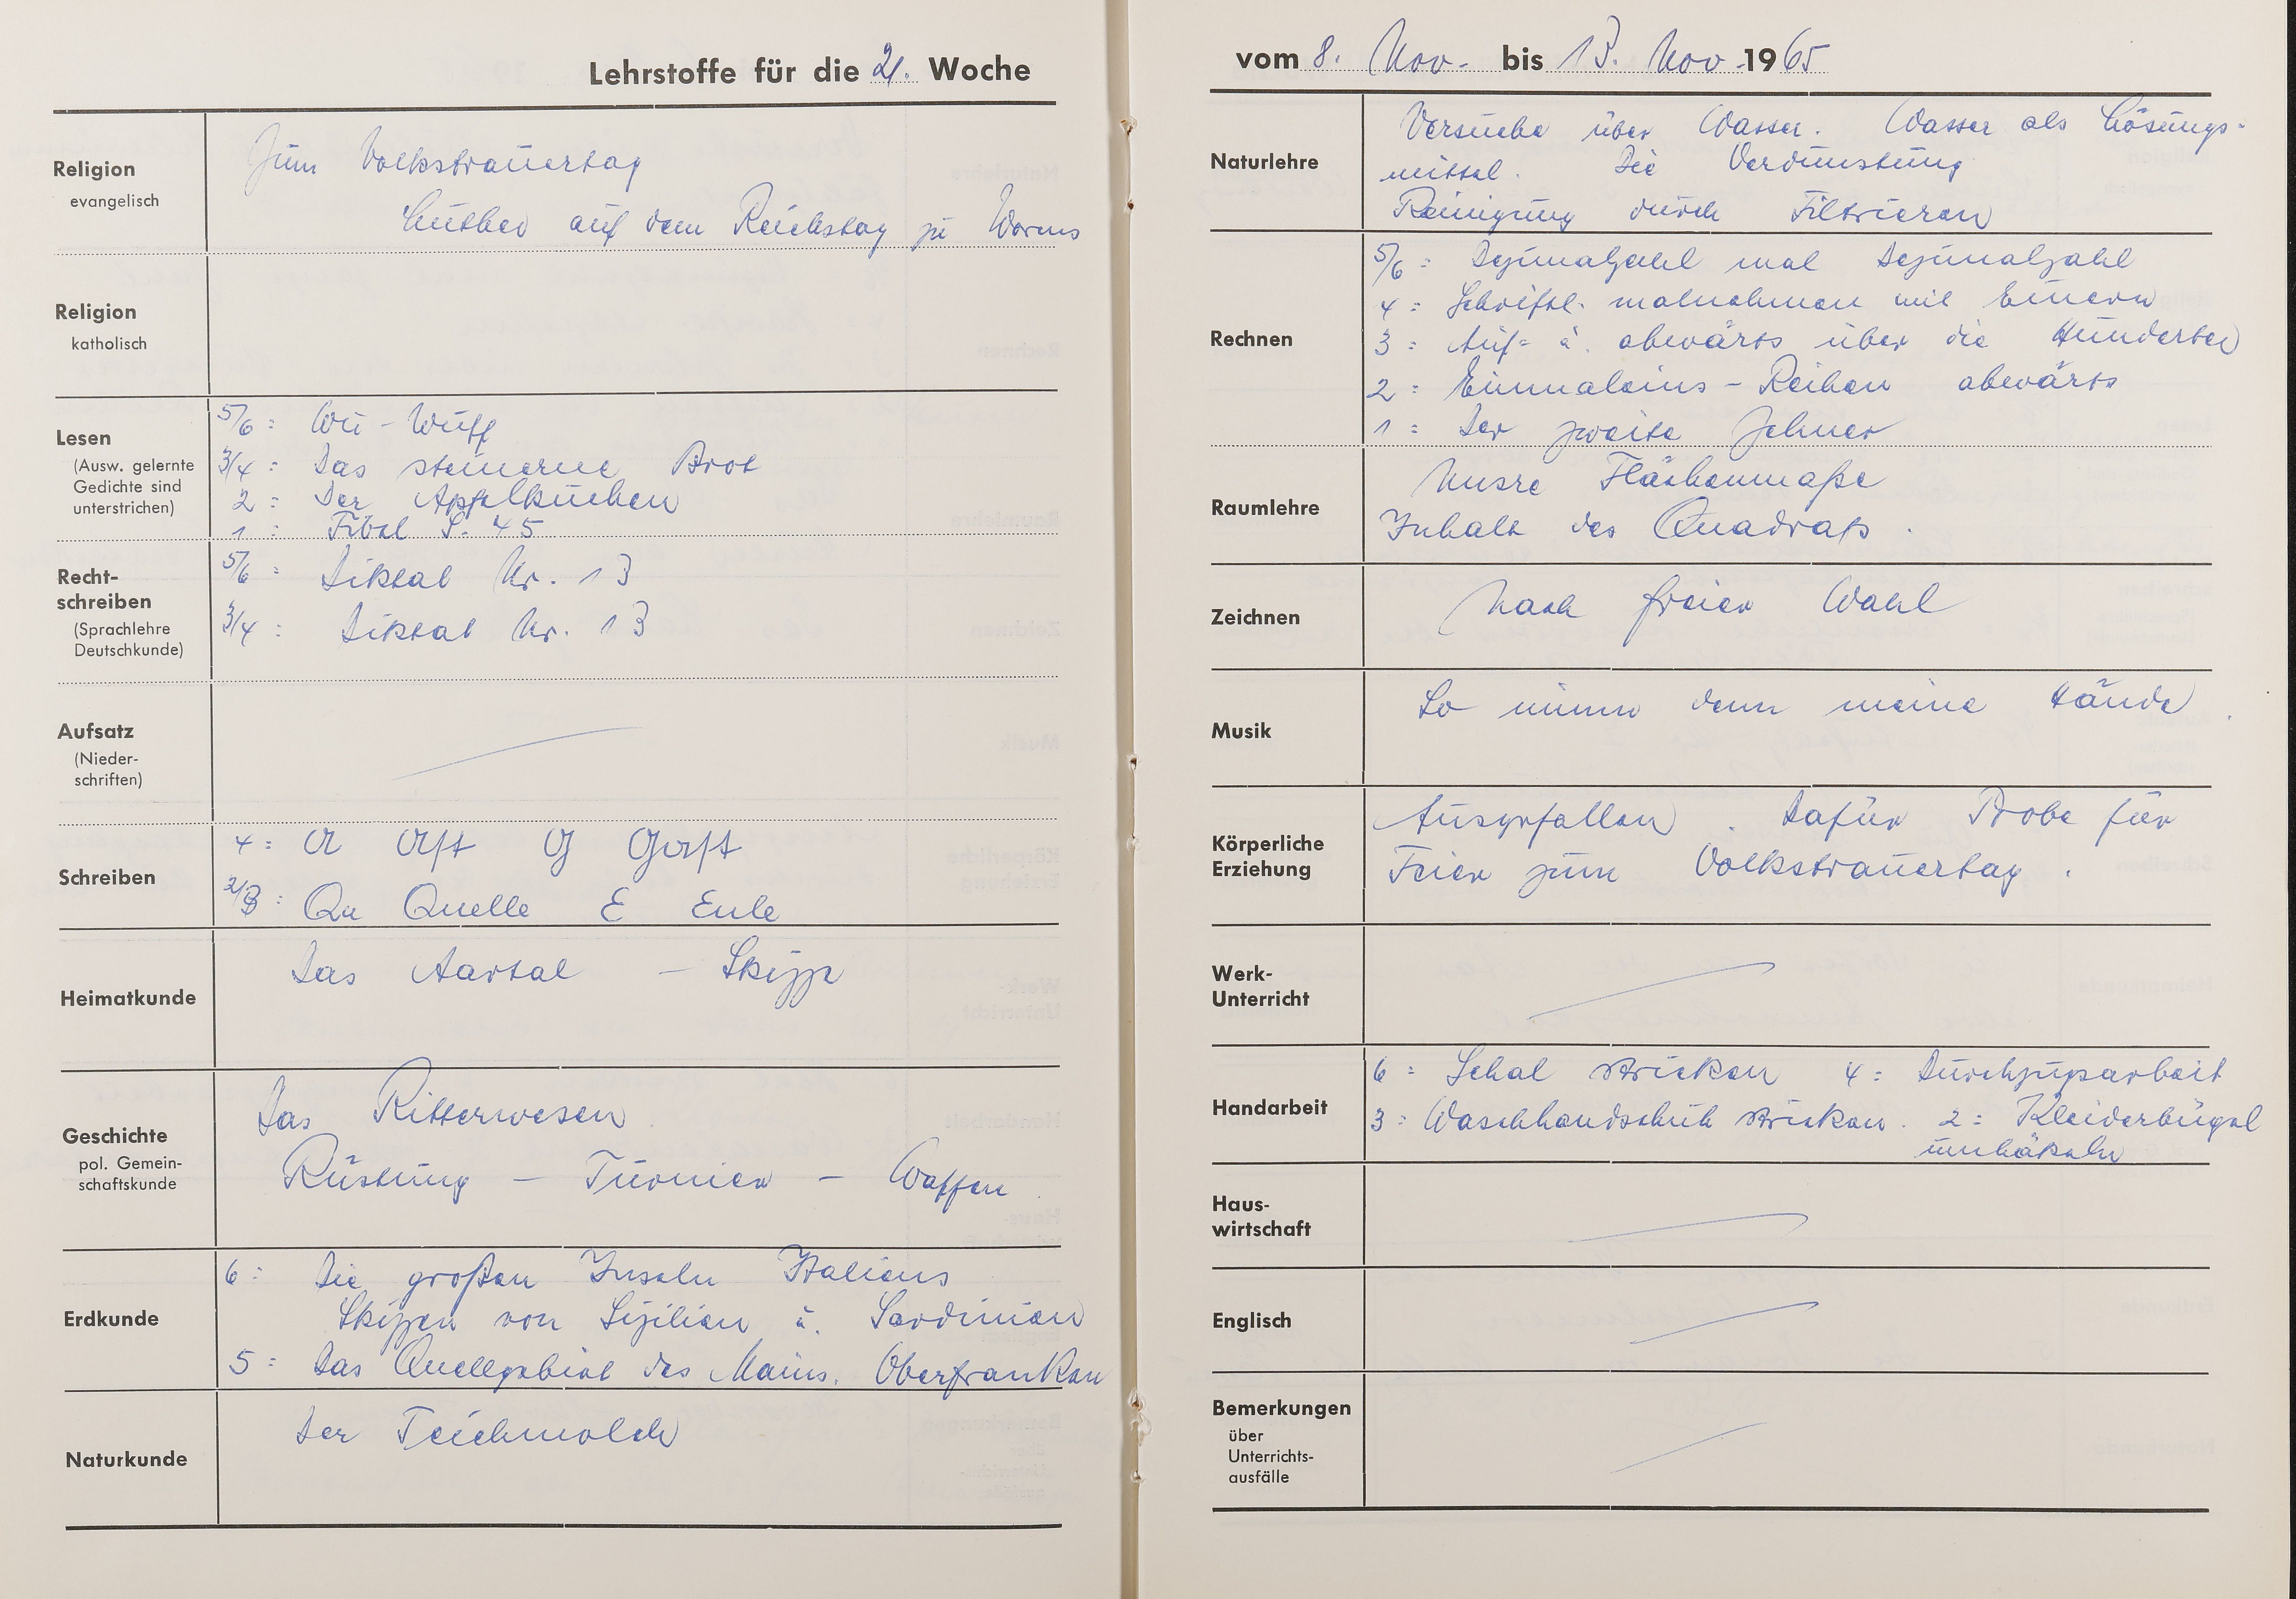 Lehrstoffe für die 21. Woche
Religion
evangelisch
Zum Volkstrauertag
Luther auf dem Reichstag zu Worms
Religion
katholisch
Lesen
(Ausw. gelernte
Gedichte sind
unterstrichen)
5/6: Wu-Wuff
3/4: Das steinerne Brot
2: Der Apfelkuchen
1: Fibel S. 45
Recht-
schreiben
(Sprachlehre
Deutschkunde)
5/6: Diktat Nr. 13
3/4: Diktat Nr. 13
Aufsatz
(Nieder-
schriften)
Schreiben
4: A Ast G Gast
2/3: Qu Quelle E Eule
Heimatkunde
Das Aartal – Skizze
Geschichte
pol. Gemein-
schaftskunde
Das Ritterwesen
Rüstung – Turnier – Waffen
Erdkunde
6: Die großen Inseln Italiens
Skizzen von Sizilien u. Sardinien
5: Das Quellgebiet des Mains. Oberfranken
Naturkunde
Der Teichmolch
vom 8. Nov. bis 13. Nov. 1965
Naturlehre
Versuche über Wasser. Wasser als Lösungs-
mittel. Die Verdunstung
Reinigung durch Filtrieren
Rechnen
5/6: Dezimalzahl mal Dezimalzahl
4: Schriftl. malnehmen mit Einern
3: Auf- u. abwärts über die Hunderter
2: Einmaleins-Reihen abwärts
1: Der zweite Zehner
Raumlehre
Unsre Flächenmaße
Inhalt des Quadrats.
Zeichnen
Nach freier Wahl
Musik
So nimm denn meine Hände.
Körperliche
Erziehung
Ausgefallen. Dafür Probe für
Feier zum Volkstrauertag.
Werk-
Unterricht
Handarbeit
6: Schal stricken 4: Durchzugsarbeit
3: Waschhandschuh stricken. 2: Kleiderbügel
umhäkeln
Haus-
wirtschaft
Englisch
Bemerkungen
über
Unterrichts-
ausfälle